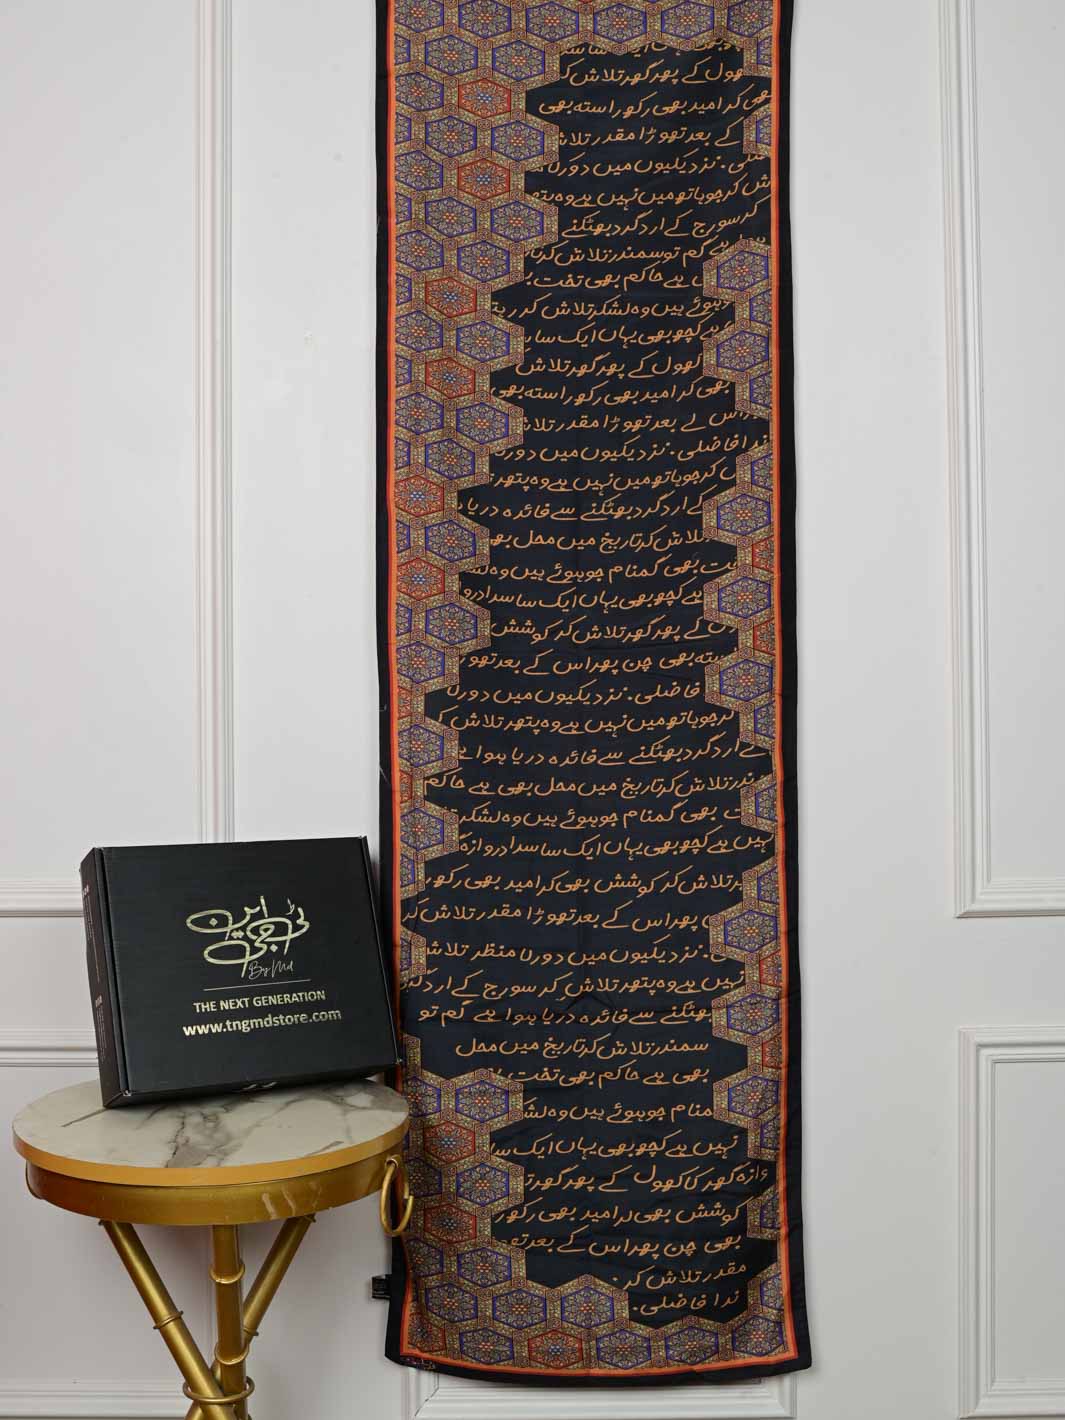 پھول کے پھر گھر تلاش کر
بھی کر امید بھی رکھ راستہ بھی
کے بعد تھوڑا مقدر تلاش
نزدیکیوں میں دور کا
کر جو ہاتھ میں نہیں ہے وہ پتھر
کر سورج کے ارد گرد بھٹکنے
ہے گم تو سمندر تلاش کر تا
ہے حاکم بھی تخت
ہوئے ہیں وہ لشکر تلاش کر
ہے کچھ بھی یہاں ایک سا
کھول کے پھر گھر تلاش
بھی کر امید بھی رکھ راستہ بھی
اس کے بعد تھوڑا مقدر تلاش
ندا فاضلی. نزدیکیوں میں دور
کر جو ہاتھ میں نہیں ہے وہ پتھر
کے ارد گرد بھٹکنے سے فائدہ دریا
تلاش کر تاریخ میں محل بھی
بھی گمنام جو ہوئے ہیں وہ
ہے کچھ بھی یہاں ایک سا سدا درو
کے پھر گھر تلاش کر کوشش
بھی چن پھر اس کے بعد تھو
فاضلی. نزدیکیوں میں دور کا
کر جو ہاتھ میں نہیں ہے وہ پتھر تلاش
ارد گرد بھٹکنے سے فائدہ دریا ہوا
تلاش کر تاریخ میں محل بھی ہے حاکم
بھی گمنام جو ہوئے ہیں وہ لشکر
نہیں ہے کچھ بھی یہاں ایک سا سدا دروازہ
تلاش کر کوشش بھی کر امید بھی رکھ
پھر اس کے بعد تھوڑا مقدر تلاش کر
نزدیکیوں میں دور کا منظر تلاش
نہیں ہے وہ پتھر تلاش کر سورج کے ارد گر
بھٹکنے سے فائدہ دریا ہوا ہے گم تو
سمندر تلاش کر تاریخ میں محل
بھی ہے حاکم بھی تخت
گمنام جو ہوئے ہیں وہ لشکر
نہیں ہے کچھ بھی یہاں ایک سا
وازہ گھر کا کھول کے پھر گھر
کوشش بھی کر امید بھی رکھ
بھی چن پھر اس کے بعد
مقدر تلاش کر .
ندا فاضلی.
ٹی این جی
By Md
THE NEXT GENERATION
www.tngmdstore.com